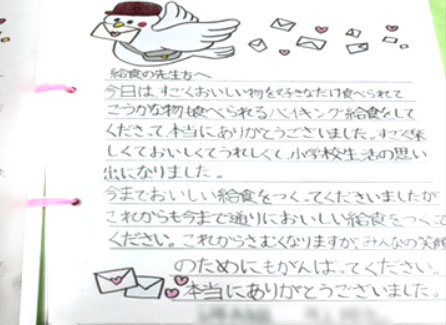 給食の先生方へ
今日は、すごくおいしい物を好きなだけ食べられて
ごうかな物も食べられるバイキング給食をして
くださって、本当にありがとうございました。すごく楽
しくておいしくてうれしくて、小学校生活の思い
出になりました。
今までおいしい給食をつくってくださいましたが
これからも今まで通りにおいしい給食をつくって
ください。これからさむくなりますが、みんなの笑顔
のためにもがんばってください。
本当にありがとうございました。